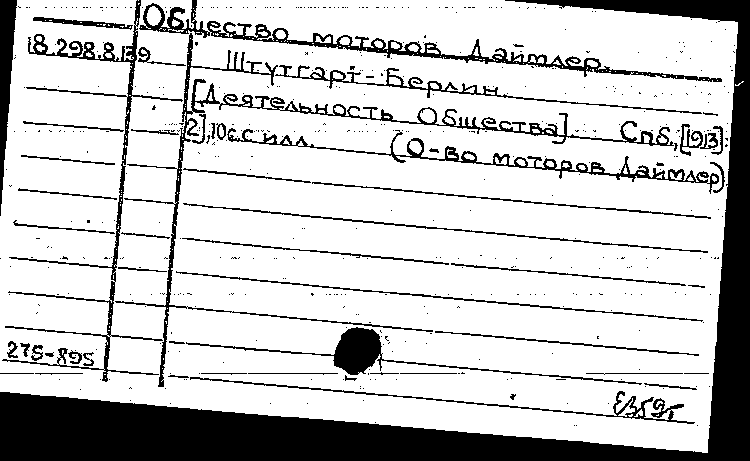 Общество моторов Даймлер.
18.298.8.139
Штутгарт-Берлин.
[Деятельность Общества]. Спб., [1913].
[2], 10 с. с илл. (О-во моторов Даймлер)
275-895